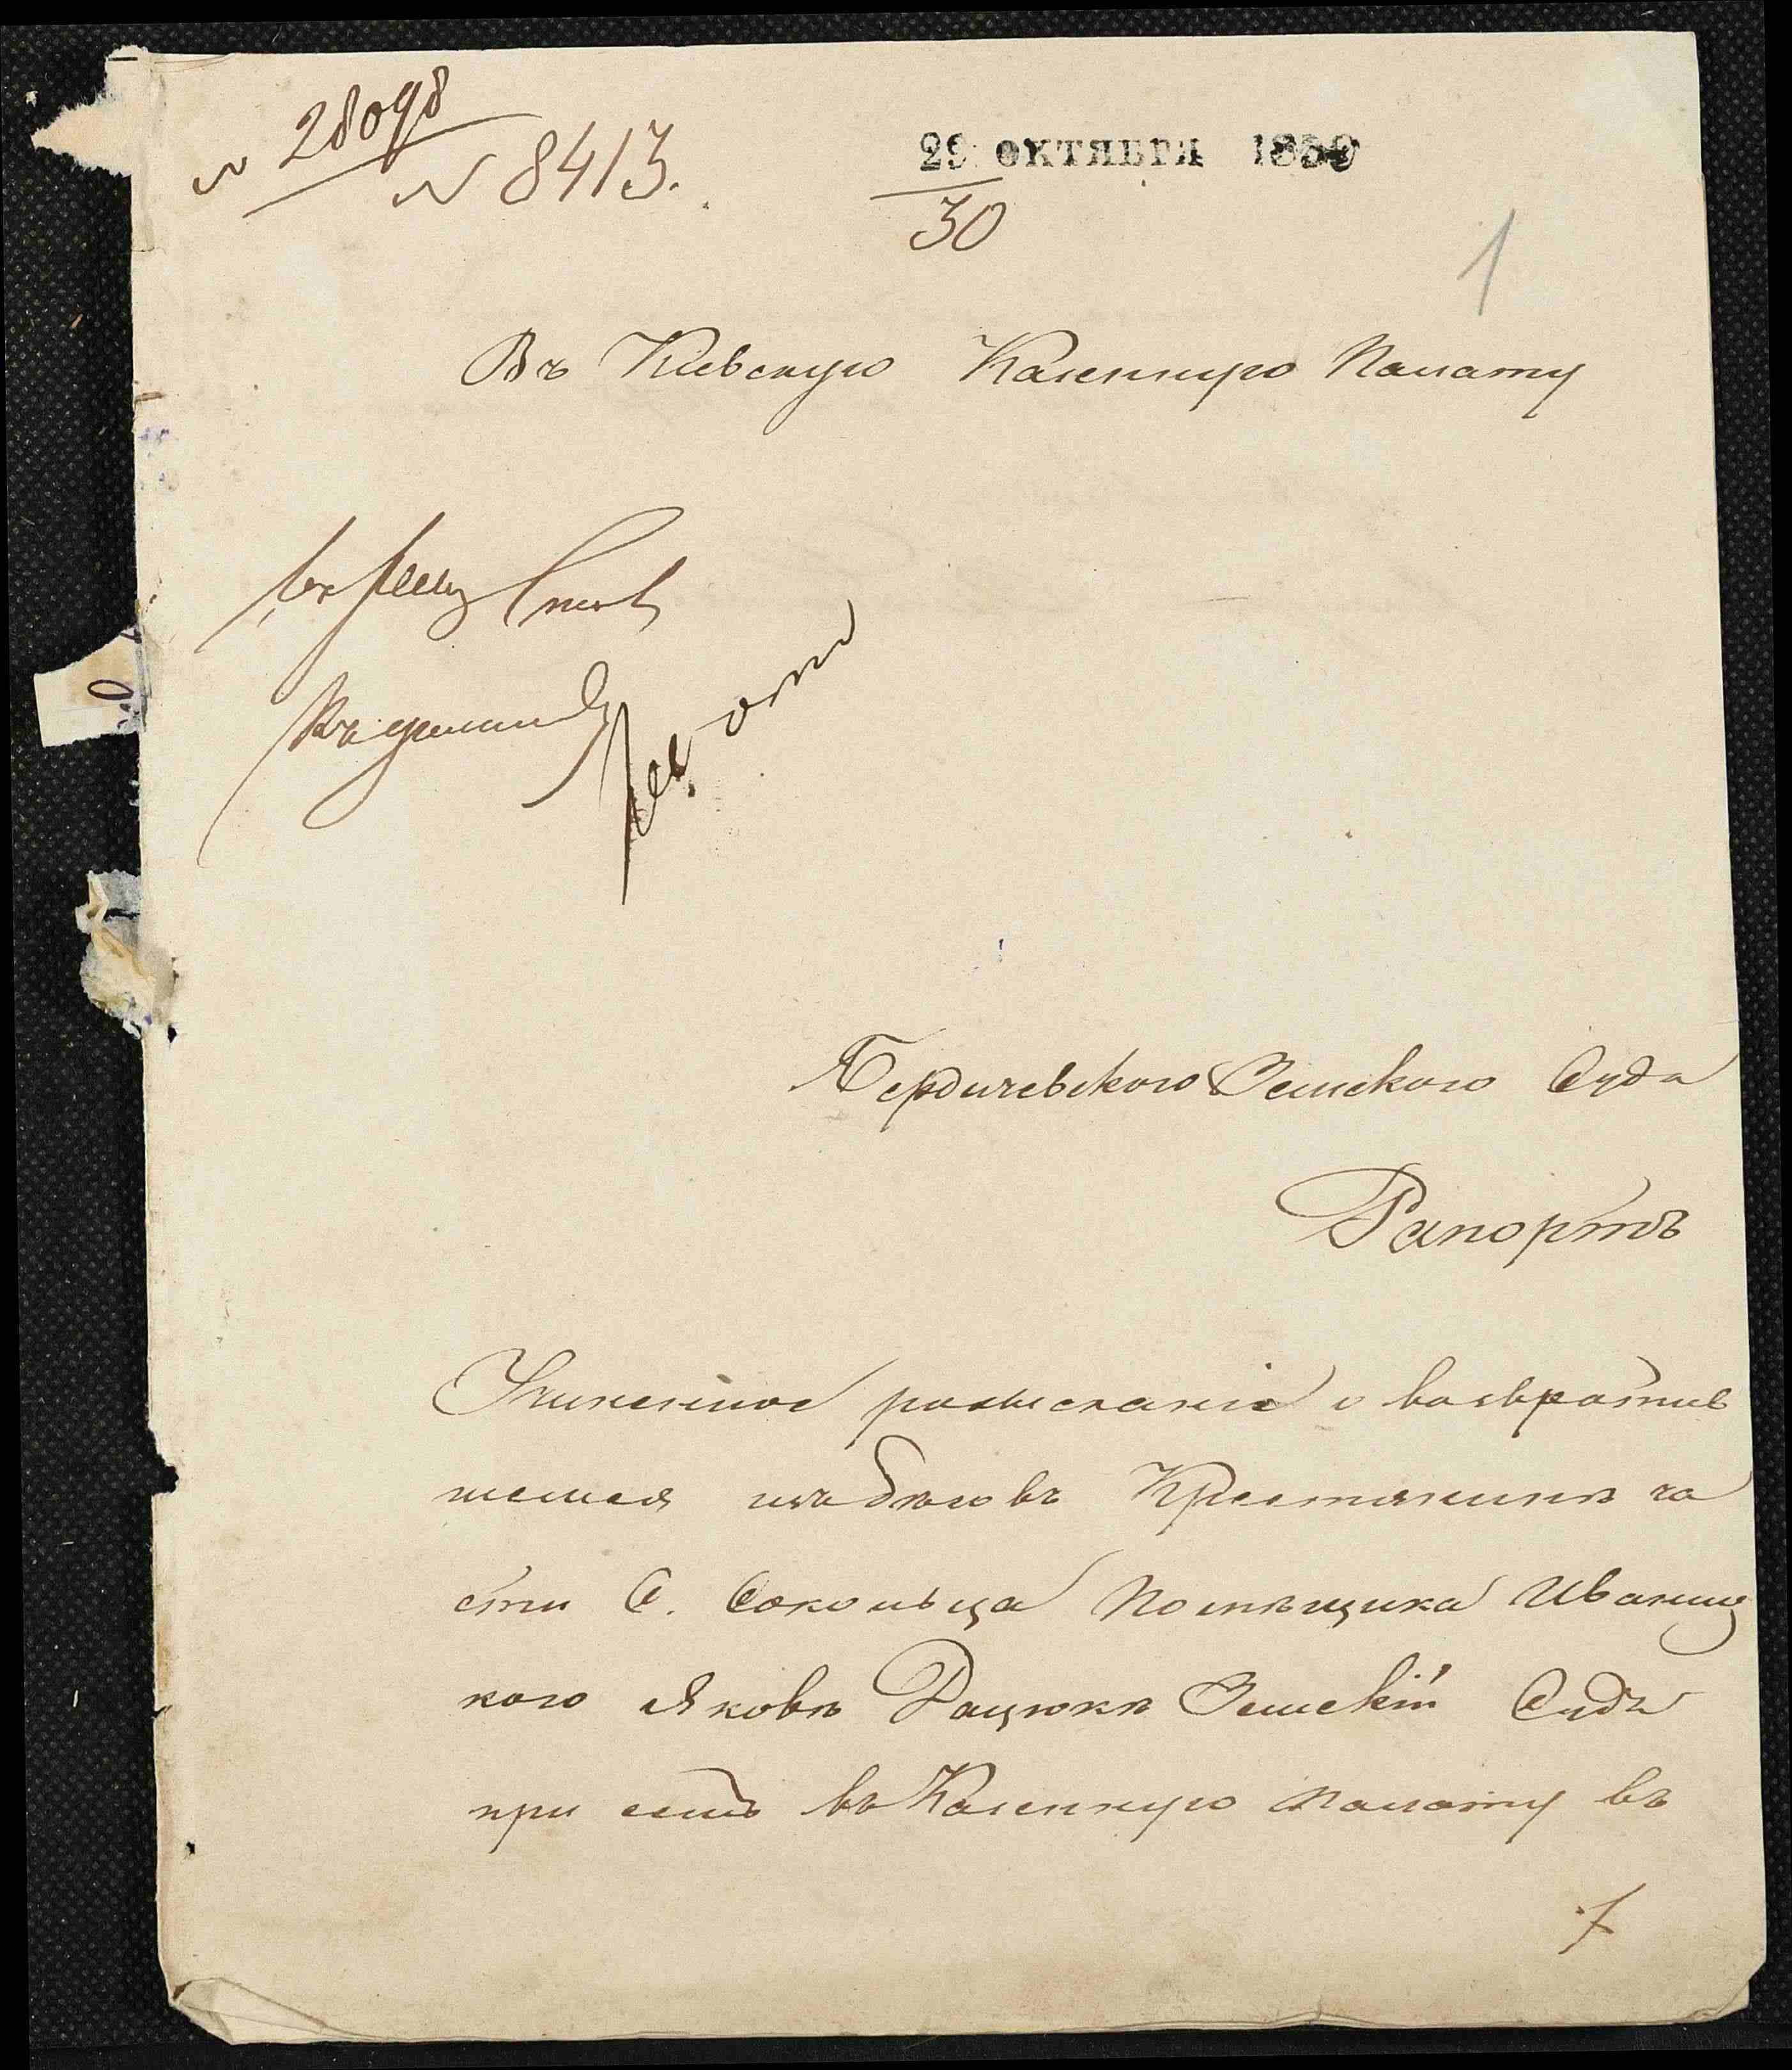 N 28098
N 8413.
29 ОКТЯБРЯ 1859
30
1
Въ Кіевскую Казенную Палату
Бердичевского Земского Суда
Рапортъ
Учиненное розысканіе о возвратив
шемся изъ бѣговъ Крестянинѣ ча
сти С. Сокольца Помѣщика Иваниц
кого Яковѣ Рацюкѣ Земскій Судъ
при семъ въ Казенную Палату въ